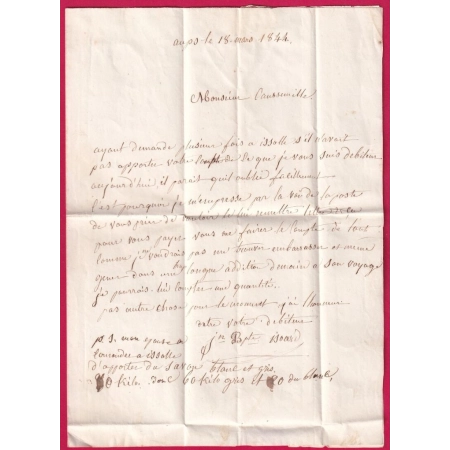 aups le 18 mars 1844.
Monsieur Caussemille.
ayant demandé plusieur fois a issalle s'il n'avait
pas apporter votre compte de ce que je vous suis debiteur
aujourd'hui il parait qu'il oublie facilement
c'est pourquoi je m'empresse par la voie de la poste
de vous prier de vouloir
pour vous payer vous me fairez le compte du tout
comme je voudrais pas me trouver embarrasser et meme
gener dans une longue addition
je pourrois lui compter une quantité.
pas autre chose pour le moment j'ai l'honneur
detre votre debiteur
Jn Bpte issard
p. s. mon epouse a
issalle
d'apporter du savon blanc et gris.
80 kilo dont 60 kilo gris et 20 du blanc,